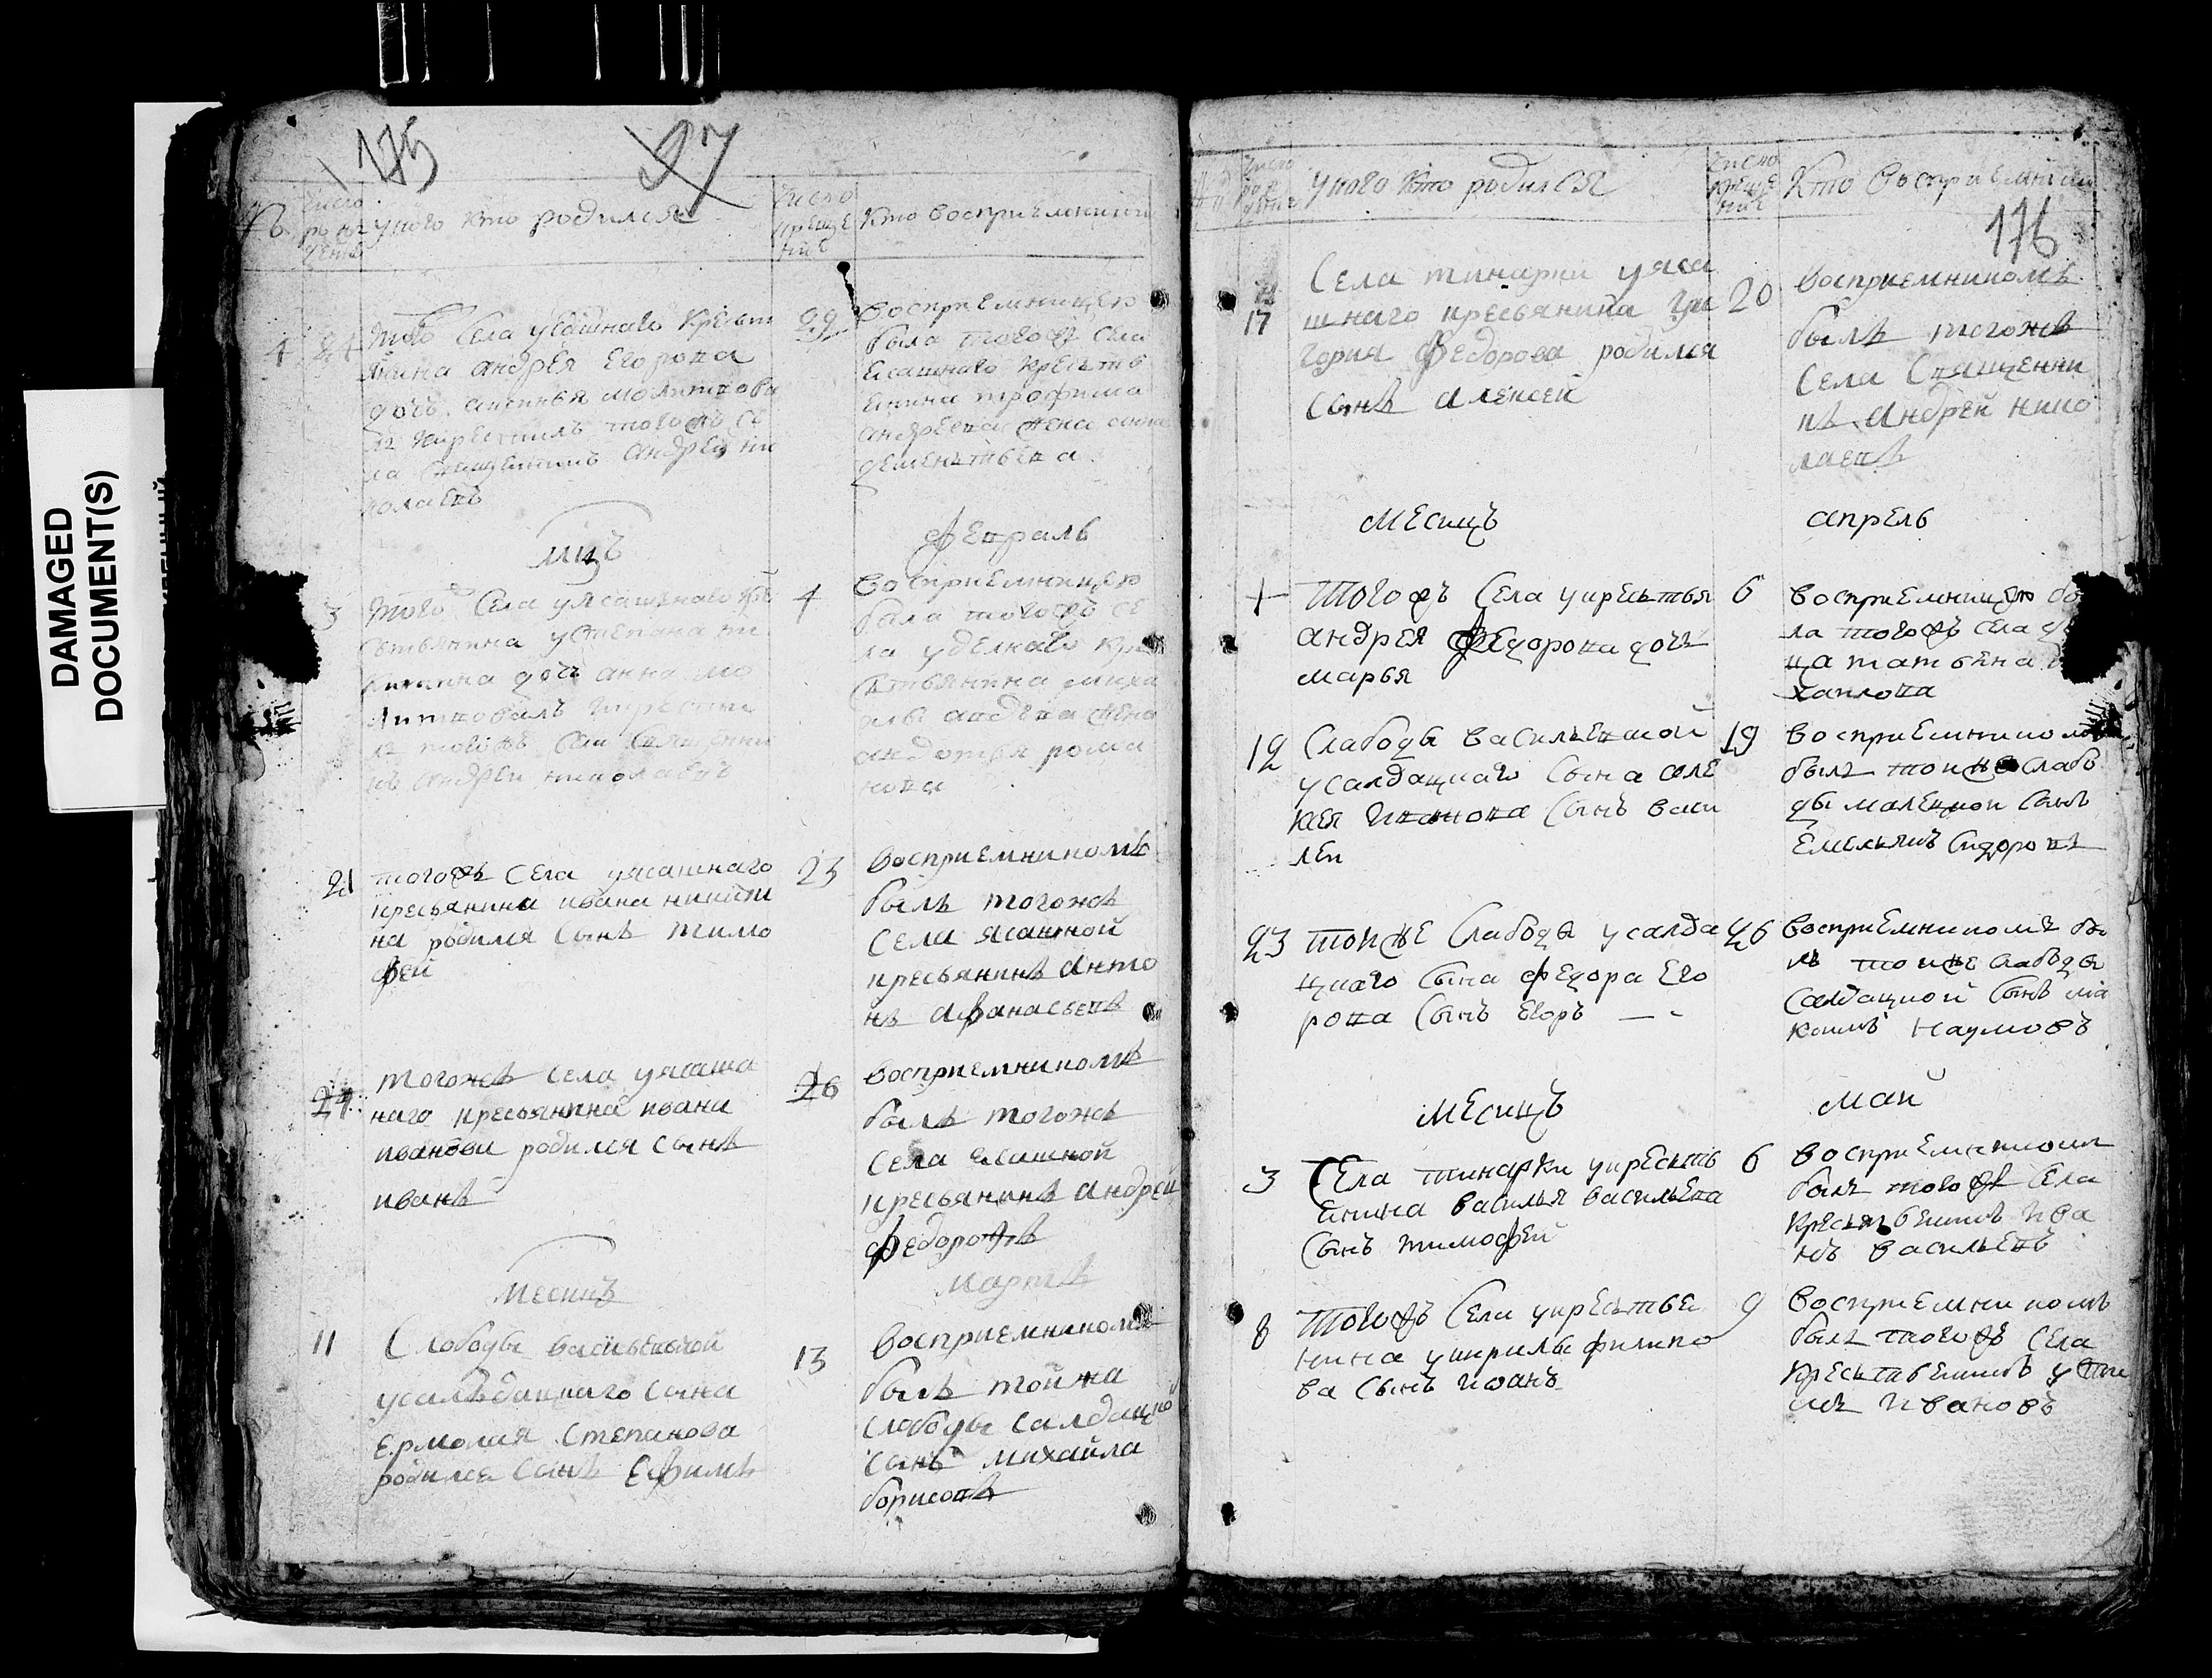 DAMAGED
DOCUMENT(S)
175
97
№
число
рож
дения
у кого кто родился
число
креще
ния
кто восприемники
4
того села уесашнаго кресть
янина андрея Егорова
дочь
ла священникъ андрей ни
колаевъ
29
восприемницею
была тогожъ села
Есашнаго кресть
янина трофима
андреева жена анна
дементьева
мцъ
февраль
3
тогожъ села уясашнаго кре
стьянина
дочь анна мо
литвовалъ и крестил
тогожъ села священни
къ андрей николаевъ
4
восприемницею
была тогожъ се
ла уделнаго кре
стьянина миха
жена
авдотья рома
нова
21
тогожъ села уясашнаго
кресьянина ивана никити
на родился сынъ тимо
фей
23
восприемникомъ
былъ тогожъ
села ясашной
кресьянинъ анто
нъ афанасьевъ
24
тогожъ села уясаша
наго кресьянина ивана
иванова родился сынъ
иванъ
26
восприемникомъ
былъ тогожъ
села есашной
кресьянинъ андрей
федоровъ
месицъ
мартъ
11
Слободы васильевской
усалъдацкаго сына
ермолая степанова
родился сынъ Ефимъ
13
восприемникомъ
былъ той жа
слободы салдацкой
сынъ михайла
борисовъ
число
рож
дения
у кого кто родился
число
креще
ния
кто восприемники
176
17
Села тинарки уяса
шнаго кресьянина гри
гория федорова родился
сынъ алексей
20
восприемникомъ
былъ тогожъ
села священни
къ андрей нико
лаевъ
месицъ
апрель
тогожъ села укрестья
андрея федорова дочь
марья
6
восприемницею бы
ла тогожъ села
ца татьена
хаилова
12
Слабоды васильевской
усалдацкаго сына алек
сея иванова сынъ васи
леи
19
восприемникомъ
былъ тоижъ слабо
ды сынъ
Емельянъ сидоровъ
23
тоиже слабоды усалда
цкаго сына федора его
рова сынъ егоръ
26
восприемникомъ бы
лъ тоиже слабоды
салдацкой сынъ ма
ксимъ наумовъ
месицъ
май
3
Села тинарки укресьть
янина василья васильева
сынъ тимофей
6
восприемникомъ
былъ тогожъ села
крестьбенинъ ива
нъ васильевъ
8
тогожъ села укрестьбе
нина укирилы филипо
ва сынъ иванъ
9
восприемникомъ
былъ тогожъ села
крестьбенинъ
ивановъ